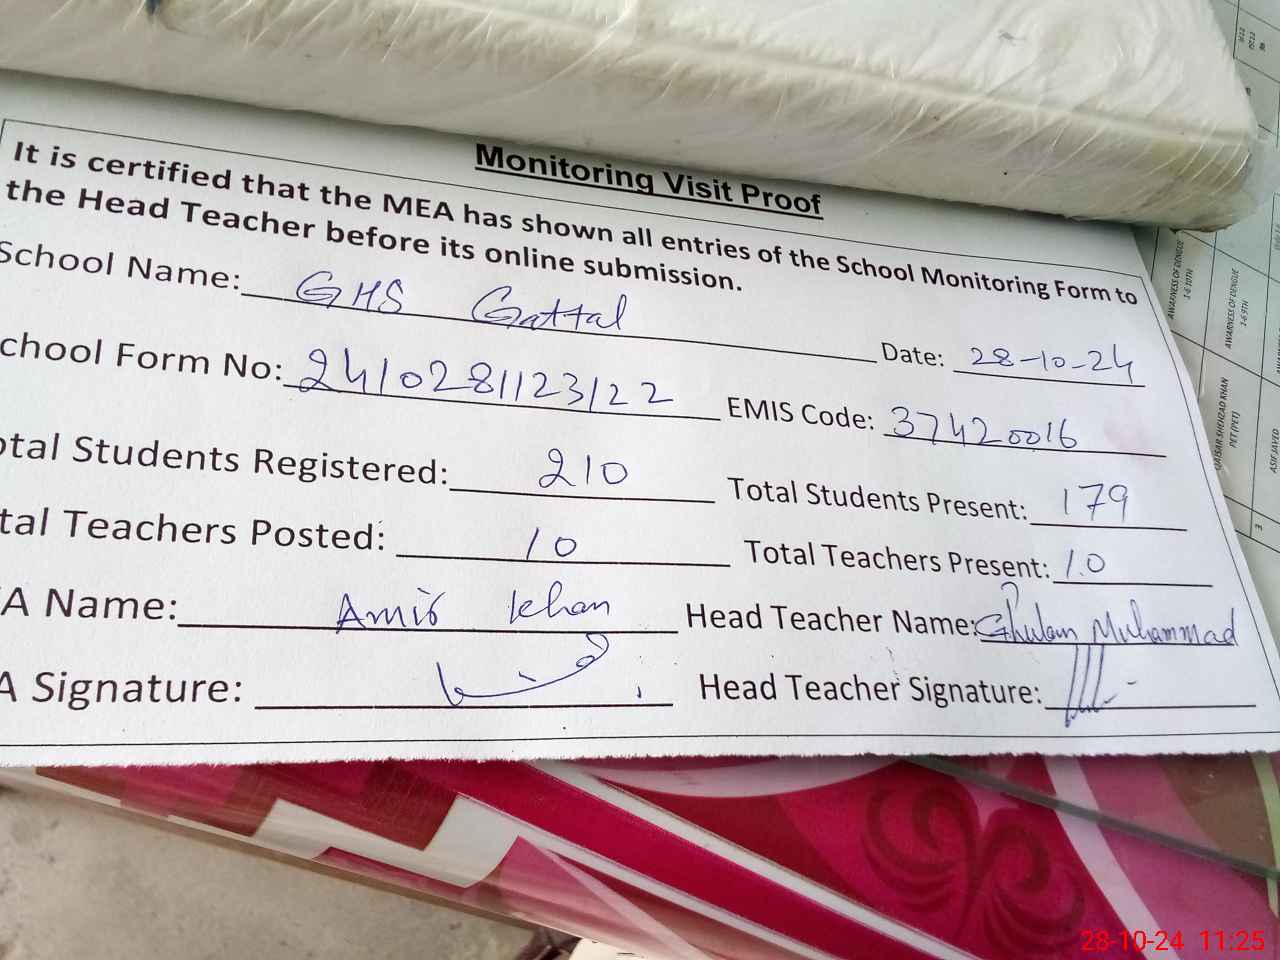 Monitoring Visit Proof
It is certified that the MEA has shown all entries of the School Monitoring Form to
the Head Teacher before its online submission.
School Name: GHS Gattal
Date: 28-10-24
chool Form No: 2410281123122
EMIS Code: 37420016
otal Students Registered: 210
Total Students Present: 179
tal Teachers Posted: 10
Total Teachers Present: 10
A Name: Amir Khan
Head Teacher Name: Ghulam Muhammad
A Signature:
Head Teacher Signature:
AWARNESS OF DENGUE
1-6 10TH
AWARNESS OF DENGUE
1-6 9TH
QAISAR SHEHZAD KHAN
PET (PET)
ASIF JAVED
28-10-24 11:25